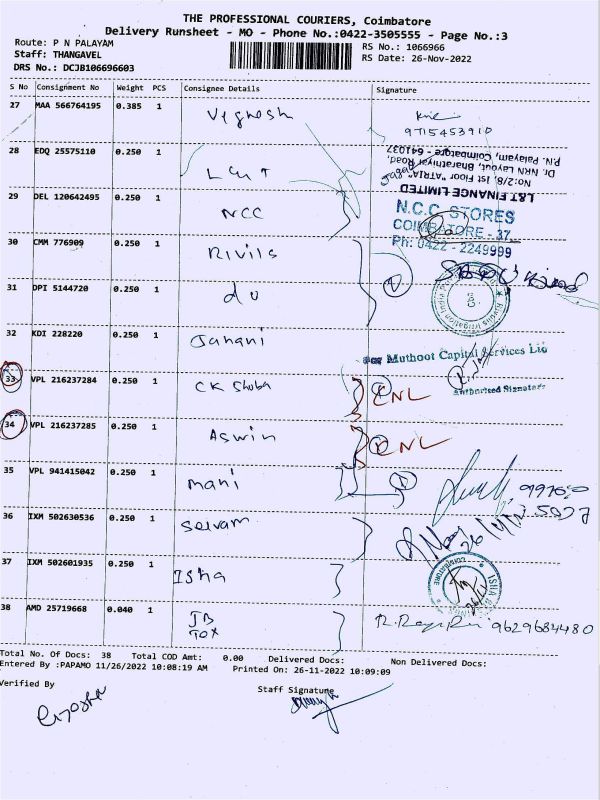 THE PROFESSIONAL COURIERS, Coimbatore
Delivery Runsheet - MO - Phone No.:0422-3505555 - Page No.:3
Route: P N PALAYAM
Staff: THANGAVEL
DRS No.: DCJB106696603
RS No.: 1066966
RS Date: 26-Nov-2022
S No Consignment No Weight PCS Consignee Details Signature
27 MAA 566764195 0.385 1 Vignesh
9715453910
28 EDQ 25575110 0.250 1 L&T
L&T FINANCE LIMITED
No:2/8, 1st Floor "ATRIA"
Dr. NRN Layout, Bharathiyar Road,
P.N. Palayam, Coimbatore - 641037
29 DEL 120642495 0.250 1 NCC
N.C.C. STORES
COIMBATORE - 37.
Ph: 0422 - 2249999
30 CMM 776909 0.250 1 Rivils
31 DPI 5144720 0.250 1 du
32 KDI 228220 0.250 1 Janani
For Muthoot Capital Services Ltd
Authorised Signatory
33 VPL 216237284 0.250 1 CK Shoba CNL
34 VPL 216237285 0.250 1 Aswin CNL
35 VPL 941415042 0.250 1 mani
36 IXM 502630536 0.250 1 Selvam
37 IXM 502601935 0.250 1 Isha
COIMBATORE
ISHA
38 AMD 25719668 0.040 1 JB
Tox
9629684480
Total No. Of Docs: 38 Total COD Amt: 0.00 Delivered Docs: Non Delivered Docs:
Entered By :PAPAMO 11/26/2022 10:08:19 AM Printed On: 26-11-2022 10:09:09
Verified By Staff Signature